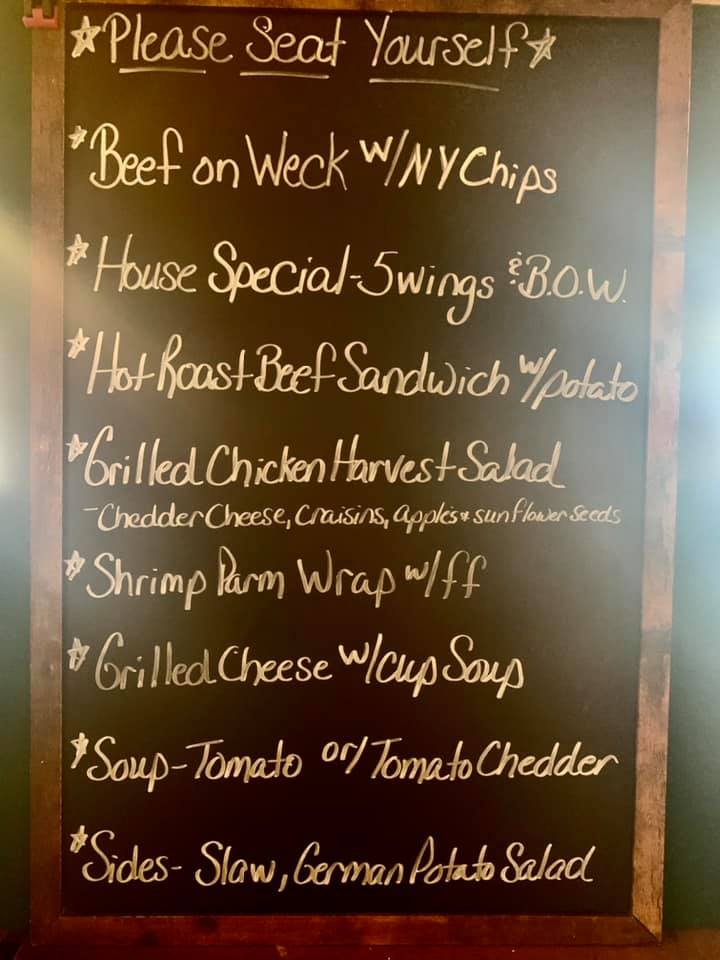 ☆Please Seat Yourself☆
☆Beef on Weck w/NY Chips
☆House Special-5 wings & B.O.W.
☆Hot Roast Beef Sandwich w/potato
☆Grilled Chicken Harvest Salad
-Chedder Cheese, Craisins, apples & sunflower seeds
☆Shrimp Parm Wrap w/ff
☆Grilled Cheese w/cup Soup
☆Soup-Tomato or/ Tomato Chedder
☆Sides- Slaw, German Potato Salad